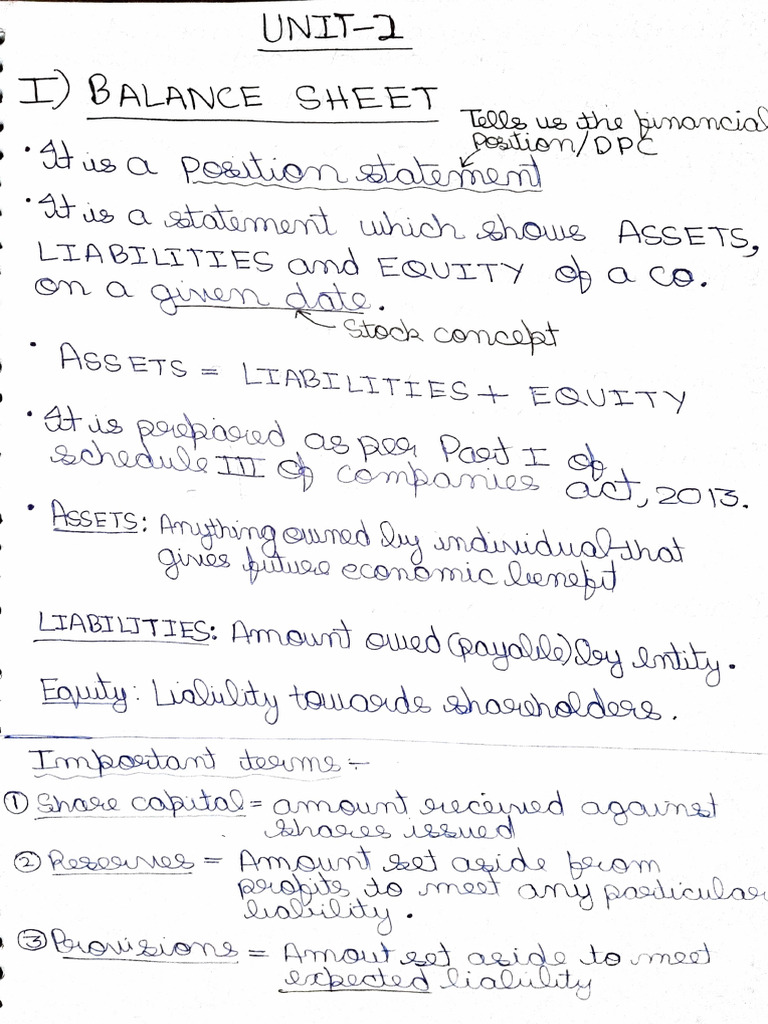 UNIT-1
I) BALANCE SHEET
Tells us the financial
position/DPC
• It is a position statement
• It is a statement which shows ASSETS,
LIABILITIES and EQUITY of a co.
on a given date.
Stock concept
• ASSETS = LIABILITIES + EQUITY
• It is prepared as per Part I of
schedule III of companies act, 2013.
• ASSETS: Anything owned by individual that
gives future economic benefit
LIABILITIES: Amount owed (payable) by entity.
Equity: Liability towards shareholders.
Important terms:-
① Share capital = amount received against
shares issued
② Reserves = Amount set aside from
profits to meet any particular
liability.
③ Provisions = Amout set aside to meet
expected liability